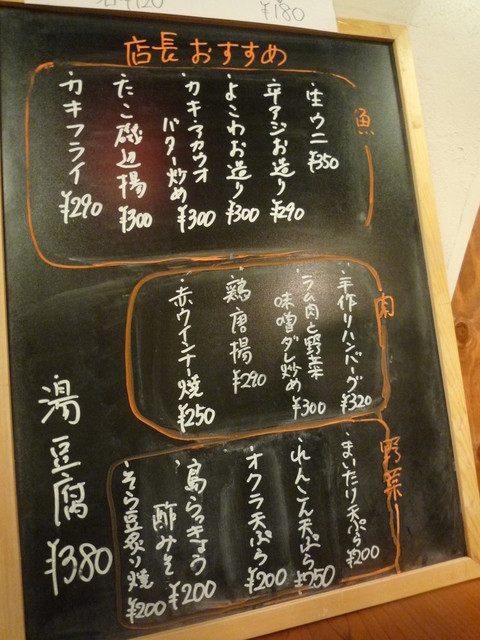 ¥120
¥180
店長おすすめ
魚
・生ウニ ¥350
・平アジお造り ¥290
・よこわお造り ¥300
・カキアカウオ
バター炒め ¥300
・たこ磯辺揚 ¥300
・カキフライ ¥290
肉
・手作りハンバーグ ¥320
・ラム肉と野菜
味噌ダレ炒め ¥300
・鶏唐揚 ¥290
・赤ウインナー焼 ¥250
野菜
・まいたけ天ぷら ¥200
・れんこん天ぷら ¥250
・オクラ天ぷら ¥200
・島らっきょう
酢みそ ¥200
・そら豆炙り焼 ¥200
湯豆腐 ¥380